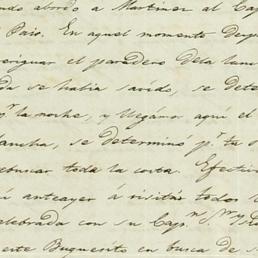 ndo abordo a Martinez al Cap
Paio. En aquel momento
eriguar el paradero dela lan
da se habia saido, se dete
pr. la noche, y llegáno aquí el
lancha, se determinó pr. ta
rebuscar toda la costa. Efectiv
anteayer á visitár todos
elebrada con su Capn. Jn. y
este Buquesito en busca de s